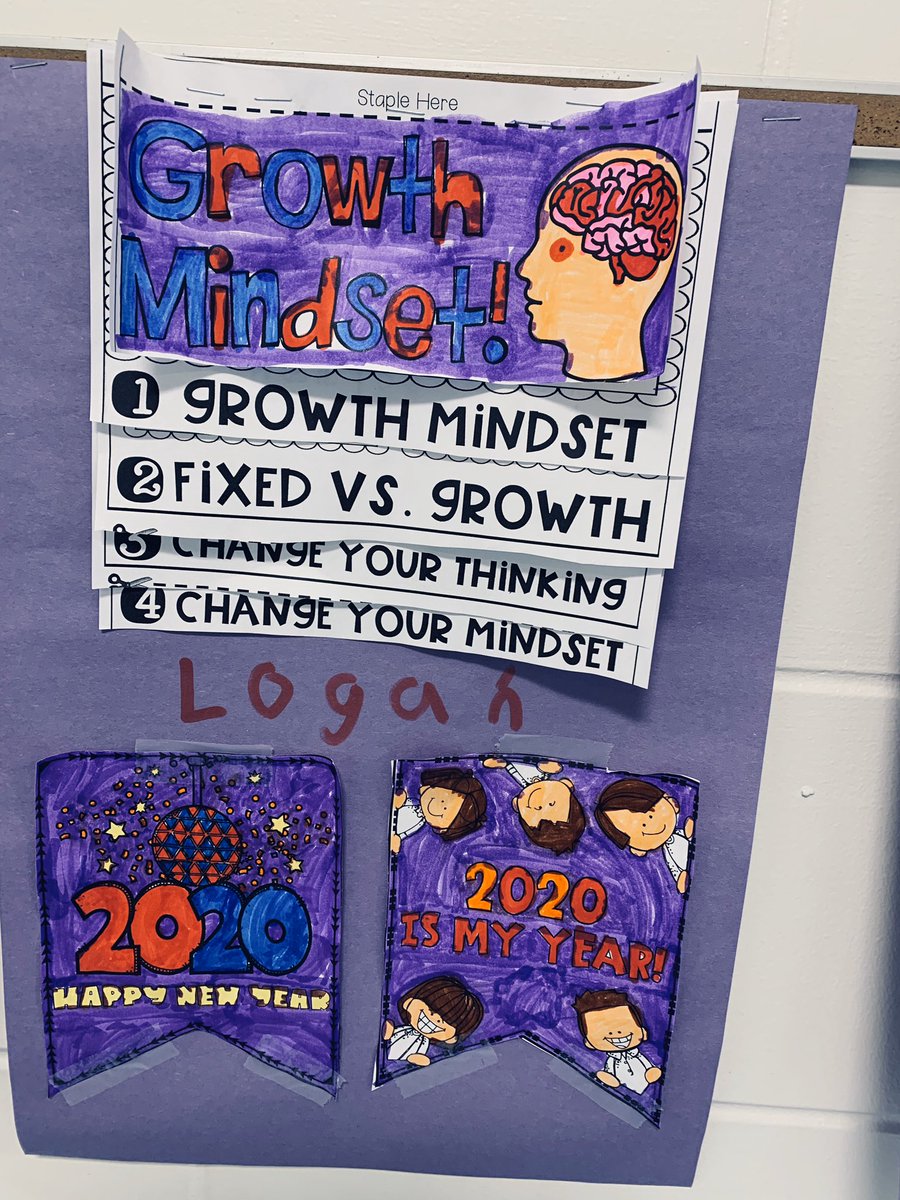 Staple Here
Growth
Mindset!
1 GROWTH MiNDSET
2 FiXED VS. GROWTH
3 CHANGE YOUR THiNKiNG
4 CHANGE YOUR MiNDSET
Logan
2020
HAPPY NEW YEAR
2020
IS MY YEAR!